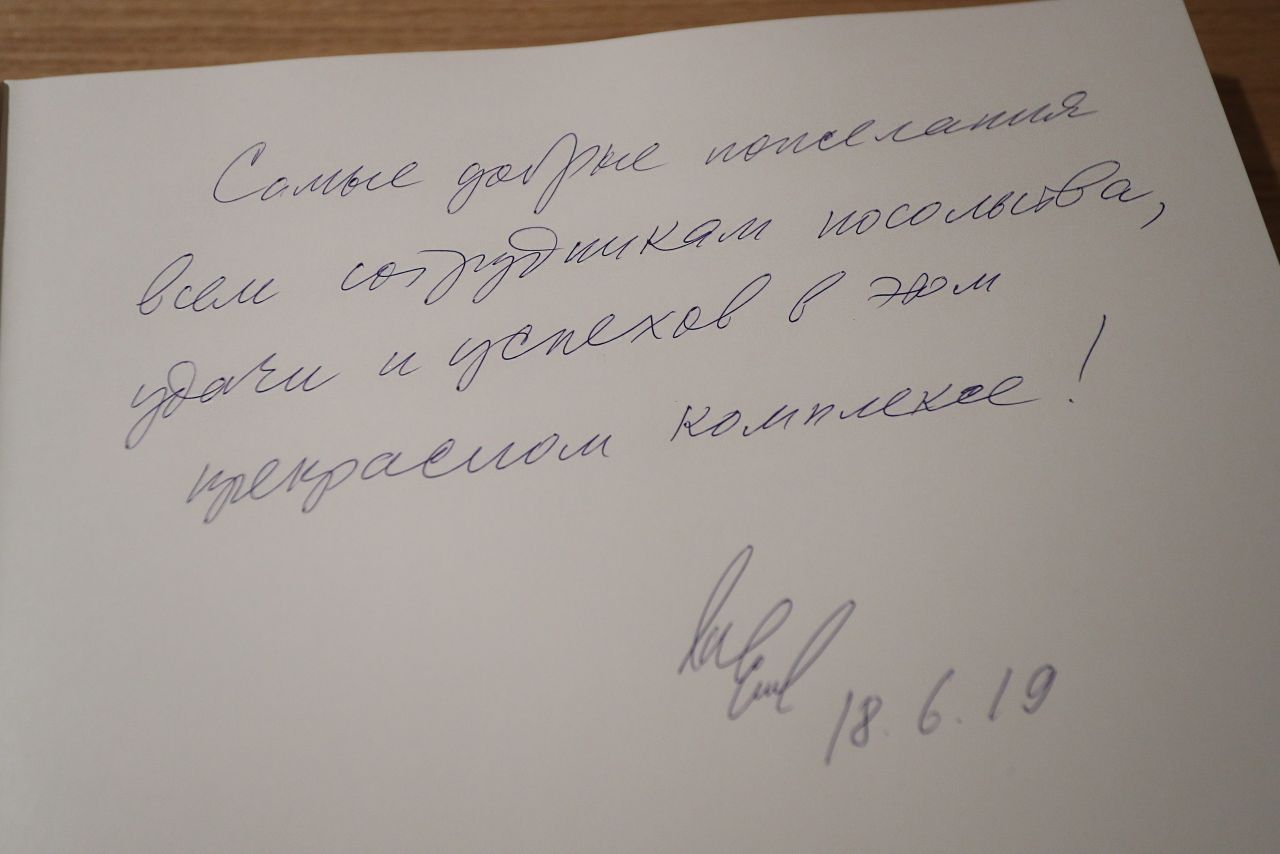 Самые добрые пожелания
всем сотрудникам посольства,
удачи и успехов в этом
прекрасном комплексе!
18.6.19